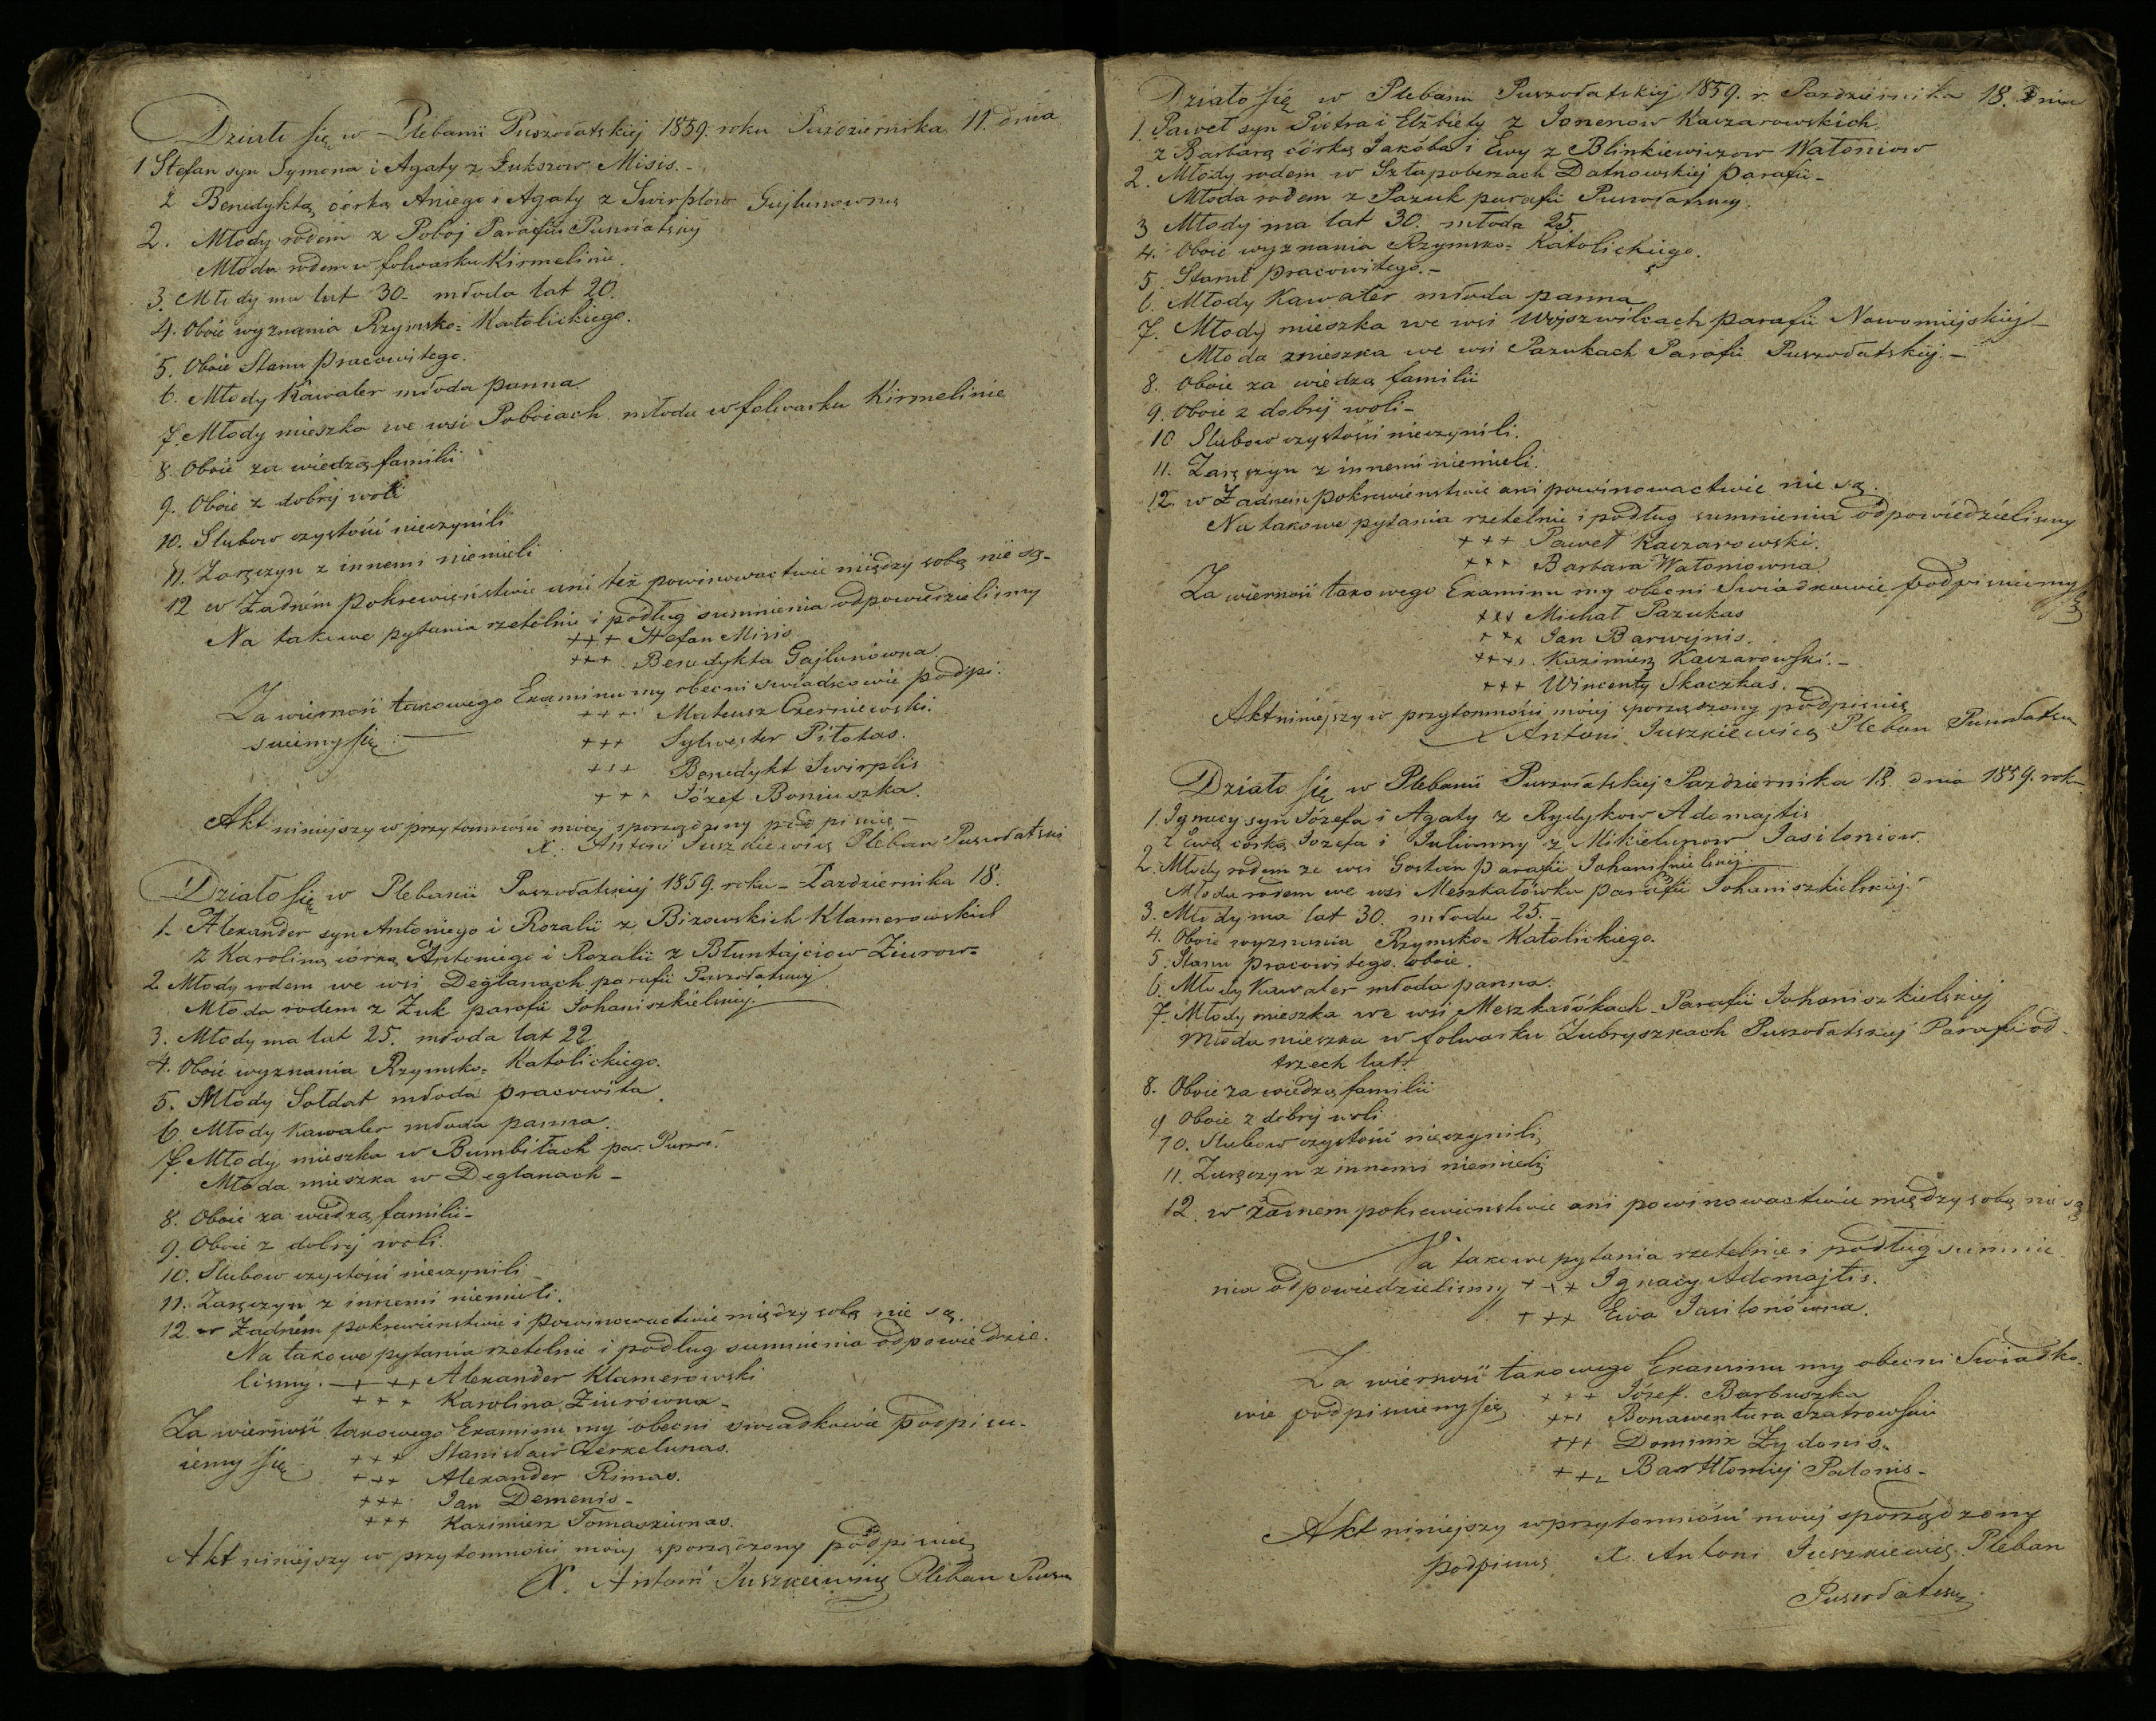 Działo się w Plebanii Puszołatskiej 1859. roku Pazdziernika 11. dnia
1 Stefan syn Symona i Agaty z Łukszow Misis.-
z Benedyktą córką Aniego i Agaty z Swirplow Gujlunowną
2. Młody rodem z Poboj Parafii Puszołatskiej
Młoda rodem w folwarku Kirmelinie.
3. Młody ma lat 30- młoda lat 20.
4. Oboie wyznania Rzymsko= Katolickiego.
5. Oboie Stanu pracowitego.
6. Młody Kawaler młoda panna.
7. Młody mieszka we wsi Poboiach młoda w folwarku Kirmelinie
8. Oboie za wiedzą familii
9. Oboie z dobrej woli
10. Slubow czystości nieczynili
11. Zaręczyn z innemi niemieli
12 w Żadném pokrewieństwie ani też powinowactwie między sobą nie są-
Na takowe pytania rzetelnie i podług sumnienia odpowiedzielismy
+++ Stefan Misis
+++ Benedykta Gajlunówna.
Za wierność takowego Examinu my obecni swiadkowie podpi:
suiemy się:
+++ Mateusz Czerniewski.
+++ Sylwester Piłotas.
+++ Benedykt Swirplis
+++ Józef Boniuszka.
Akt niniejszy w przytomności mojej sporządzony podpisuię-
X. Antoni Juszkiewicz Pleban Puszołatski
Działo się w Plebanii Puszołatskiej 1859. roku- Pazdziernika 18.
1. Alexander syn Antoniego i Rozalii z Bizowskich Klamerowskich
z Karoliną córką Antoniego i Rozalii z Błuntajciow Ziurow=
2 Młody rodem we wsi Deglanach parafii Puszołatskiej
Młoda rodem z Żuk parafii Johaniszkielskiej.
3. Młody ma lat 25. młoda lat 22
4. Oboie wyznania Rzymsko= Katolickiego.
5. Młody Sołdat młoda pracowita.
6. Młody Kawaler młoda panna.
7. Młody mieszka w Bumbiłach par. Puszoł.
Młoda mieszka w Deglanach-
8. Oboie za wiedzą familii-
9. Oboie z dobrej woli.
10. Slubow czystości nieczynili
11. Zaręczyn z innemi niemieli.
12. w Żadném pokrewienstwie i powinowactwie między sobą nie są.
Na takowe pytania rzetelnie i podług sumnienia odpowiedzie.
lismy. +++ Alexander Klamerowski
+++ Karolina Ziurówna-
Za wierność takowego Examinu my obecni swiadkowie podpisu-
iemy się
+++ Stanisław Czerkelunas.
+++ Alexander Rimas.
+++ Jan Demenis-
+++ Kazimierz Tomaszunas.
Akt niniejszy w przytomności mojej sporządzony podpisuię
X. Antoni Juszkiewicz Pleban Puszo
Działo się w Plebanii Puszołatskiej 1859. r. Pazdziernika 18. Dnia
1. Paweł syn Piotra i Elżbiety z Jonenow Kaczarowskich
z Barbarą córką Jakóba i Ewy z Blinkiewiczow Wałoniow
2. Młody rodem w Szłapoberzach Datnowskiej parafii-
Młoda rodem z Pazuk parafii Puszołatskiej.
3 Młody ma lat 30. młoda 25.
4. Oboie wyznania Rzymsko= Katolickiego.
5. Stanu pracowitego.-
6. Młody Kawaler młoda panna
7. Młody mieszka we wsi Wojszwilcach parafii Nowomiejskiej-
Młoda mieszka we wsi Pazukach Parafii Puszołatskiej.-
8. Oboie za wiedzą familii
9. Oboie z dobrej woli-
10 Slubow czystości nieczynili.
11. Zaręczyn z innemi niemieli.
12. w Żadnem pokrewieństwie ani powinowactwie nie są.
Na takowe pytania rzetelnie i podług sumnienia odpowiedzielismy
+++ Paweł Kaczarowski.
+++ Barbara Wałoniowna
Za wierność takowego Examinu my obecni Swiadkowie podpisuiemy się
+++ Michał Pazukas
+++ Jan Barwijnis.
+++ Kazimierz Kaczarowski.-
+++ Wincenty Skaczkas.
Akt niniejszy w przytomności mojej sporządzony podpisuię
X Antoni Juszkiewicz Pleban Puszołatski
Działo się w Plebanii Puszołatskiej Pazdziernika 18. dnia 1859. roku
1. Ignacy syn Józefa i Agaty z Rydykow Adomajtis
z Ewą córką Jozefa i Julianny z Mikielunow Jasiloniow.
2. Młody rodem ze wsi Gostun parafii Johaniszkielskiej.
Młoda rodem we wsi Meszkałówku parafii Johaniszkielskiej.
3. Młody ma lat 30. młoda 25.-
4. Oboie wyznania Rzymsko= Katolickiego.
5. Stanu pracowitego. oboie.
6. Młody Kawaler młoda panna.
7. Młody mieszka we wsi Meszkałókach Parafii Johaniszkielskiej
Młoda mieszka w folwarku Zubryszkach Puszołatskiej Parafii od-
trzech lat.
8. Oboie za wiedzą familii
9 Oboie z dobrej woli
10. Slubow czystości nieczynili
11. Zaręczyn z innemi niemieli
12. w żadnem pokrewienstwie ani powinowactwie między sobą nie są
Na takowe pytania rzetelnie i podług sumnie
nia odpowiedzielismy +++ Ignacy Adomajtis.
+++ Ewa Jasilonówna.
Za wierność takowego Examinu my obecni Swiadko-
wie podpisuiemy się
+++ Józef. Barbuszka
+++ Bonawentura Szatrowski
+++ Dominik Żydonis.
+++ Barthłomiej Palonis-
Akt niniejszy w przytomności mojej sporządzony
podpisuię X. Antoni Juszkiewicz Pleban
Puszołatski